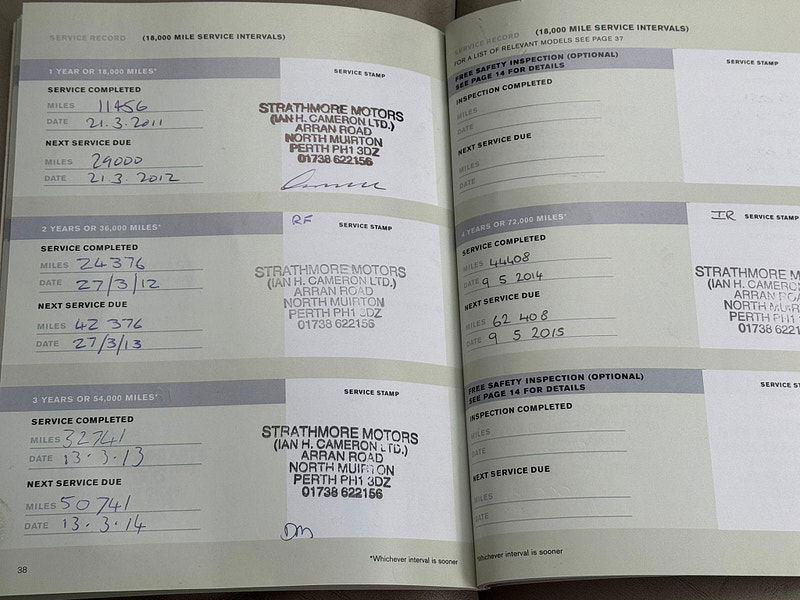 SERVICE RECORD (18,000 MILE SERVICE INTERVALS)
1 YEAR OR 18,000 MILES*
SERVICE STAMP
SERVICE COMPLETED
MILES 11456
DATE 21.3.2011
NEXT SERVICE DUE
MILES 29000
DATE 21.3.2012
STRATHMORE MOTORS
(IAN H. CAMERON LTD.)
ARRAN ROAD
NORTH MUIRTON
PERTH PH1 3DZ
01738 622156
2 YEARS OR 36,000 MILES*
RF SERVICE STAMP
SERVICE COMPLETED
MILES 24376
DATE 27/3/12
NEXT SERVICE DUE
MILES 42 376
DATE 27/3/13
STRATHMORE MOTORS
(IAN H. CAMERON LTD.)
ARRAN ROAD
NORTH MUIRTON
PERTH PH1 3DZ
01738 622156
3 YEARS OR 54,000 MILES*
SERVICE STAMP
SERVICE COMPLETED
MILES 32741
DATE 13.3.13
NEXT SERVICE DUE
MILES 50741
DATE 13.3.14
STRATHMORE MOTORS
(IAN H. CAMERON LTD.)
ARRAN ROAD
NORTH MUIRTON
PERTH PH1 3DZ
01738 622156
DM
*Whichever interval is sooner
38
SERVICE RECORD (18,000 MILE SERVICE INTERVALS)
FOR A LIST OF RELEVANT MODELS SEE PAGE 37
FREE SAFETY INSPECTION (OPTIONAL)
SEE PAGE 14 FOR DETAILS
SERVICE STAMP
INSPECTION COMPLETED
MILES
DATE
NEXT SERVICE DUE
MILES
DATE
4 YEARS OR 72,000 MILES*
IR SERVICE STAMP
SERVICE COMPLETED
MILES 44408
DATE 9 5 2014
NEXT SERVICE DUE
MILES 62 408
DATE 9 5 2015
STRATHMORE M
(IAN H. CAMERON
ARRAN RO
NORTH MU
PERTH PH1
01738 622
FREE SAFETY INSPECTION (OPTIONAL)
SEE PAGE 14 FOR DETAILS
SERVICE ST
INSPECTION COMPLETED
MILES
DATE
NEXT SERVICE DUE
MILES
DATE
*Whichever interval is sooner